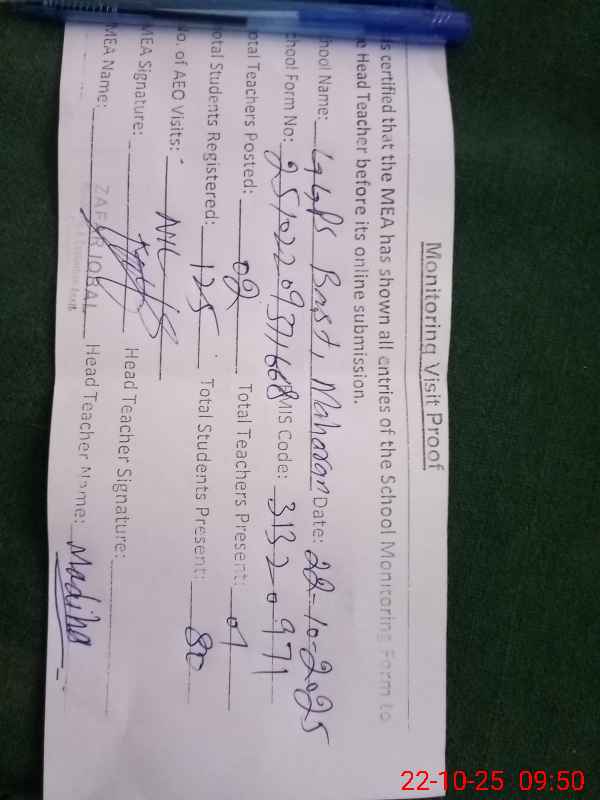 Monitoring Visit Proof
is certified that the MEA has shown all entries of the School Monitoring Form to
e Head Teacher before its online submission.
hool Name: GGPS Basti Maharan Date: 22-10-2025
chool Form No: 251022093711668 MIS Code: 31320971
otal Teachers Posted: 02 Total Teachers Present: 01
otal Students Registered: 125 Total Students Present: 80
No. of AEO Visits: NIL
MEA Signature: Head Teacher Signature:
MEA Name: ZAFAR IQBAL Head Teacher Name: Madiha
22-10-25 09:50